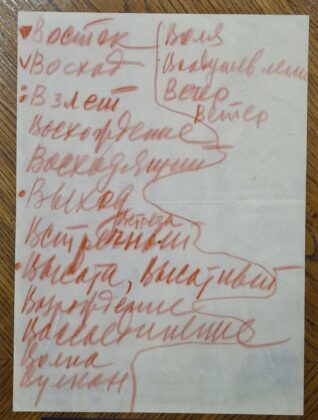 Восток
Восход
Взлет
Восхождение
Восходящий
Выход
Встреча
Встречный
Высота, Высотный
Возрождение
Воссоединение
Волна
Вулкан
Воля
Воодушевление
Вечер
Ветер